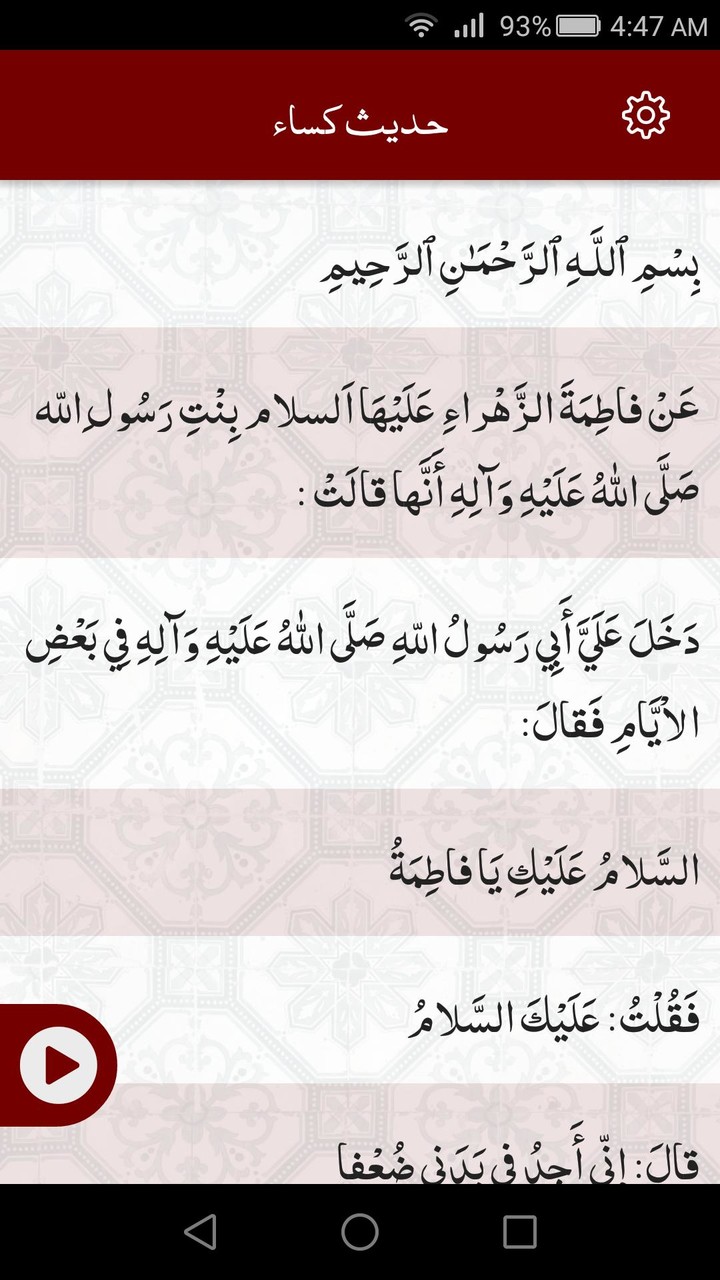 93% 4:47 AM
حدیث کساء
بِسْمِ ٱللَّهِ ٱلرَّحْمَٰنِ ٱلرَّحِيمِ
عَنْ فاطِمَةَ الزَّهْراءِ عَلَيْهَا اَلسلام بِنْتِ رَسُولِ اللّه
صَلَّى اللهُ عَلَيْهِ وَآلِهِ أَنَّها قالَتْ :
دَخَلَ عَلَيَّ أَبِي رَسُولُ اللّهِ صَلَّى اللهُ عَلَيْهِ وَآلِهِ فِي بَعْضِ
الاْيَّامِ فَقالَ:
السَّلامُ عَلَيْكِ يَا فاطِمَةُ
فَقُلْتُ: عَلَيْكَ السَّلامُ
قالَ: إنِّي أَجِدُ فِي بَدَنِي ضُعْفا